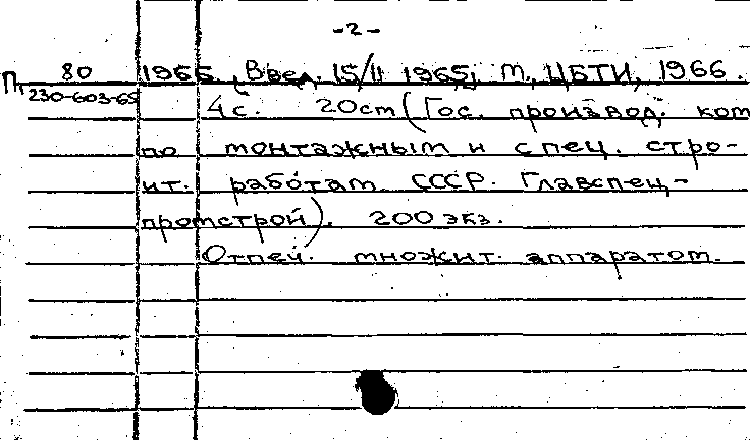 -2-
П, 80 1965. Введ. 15/II 1965, М., ЦБТИ, 1966.
230-603-65 4с. 20cm (Гос. производ. ком
по монтажным и спец. стро-
ит. работам СССР. Главспец-
промстрой). 200 экз.
Отпеч. множит. аппаратом.